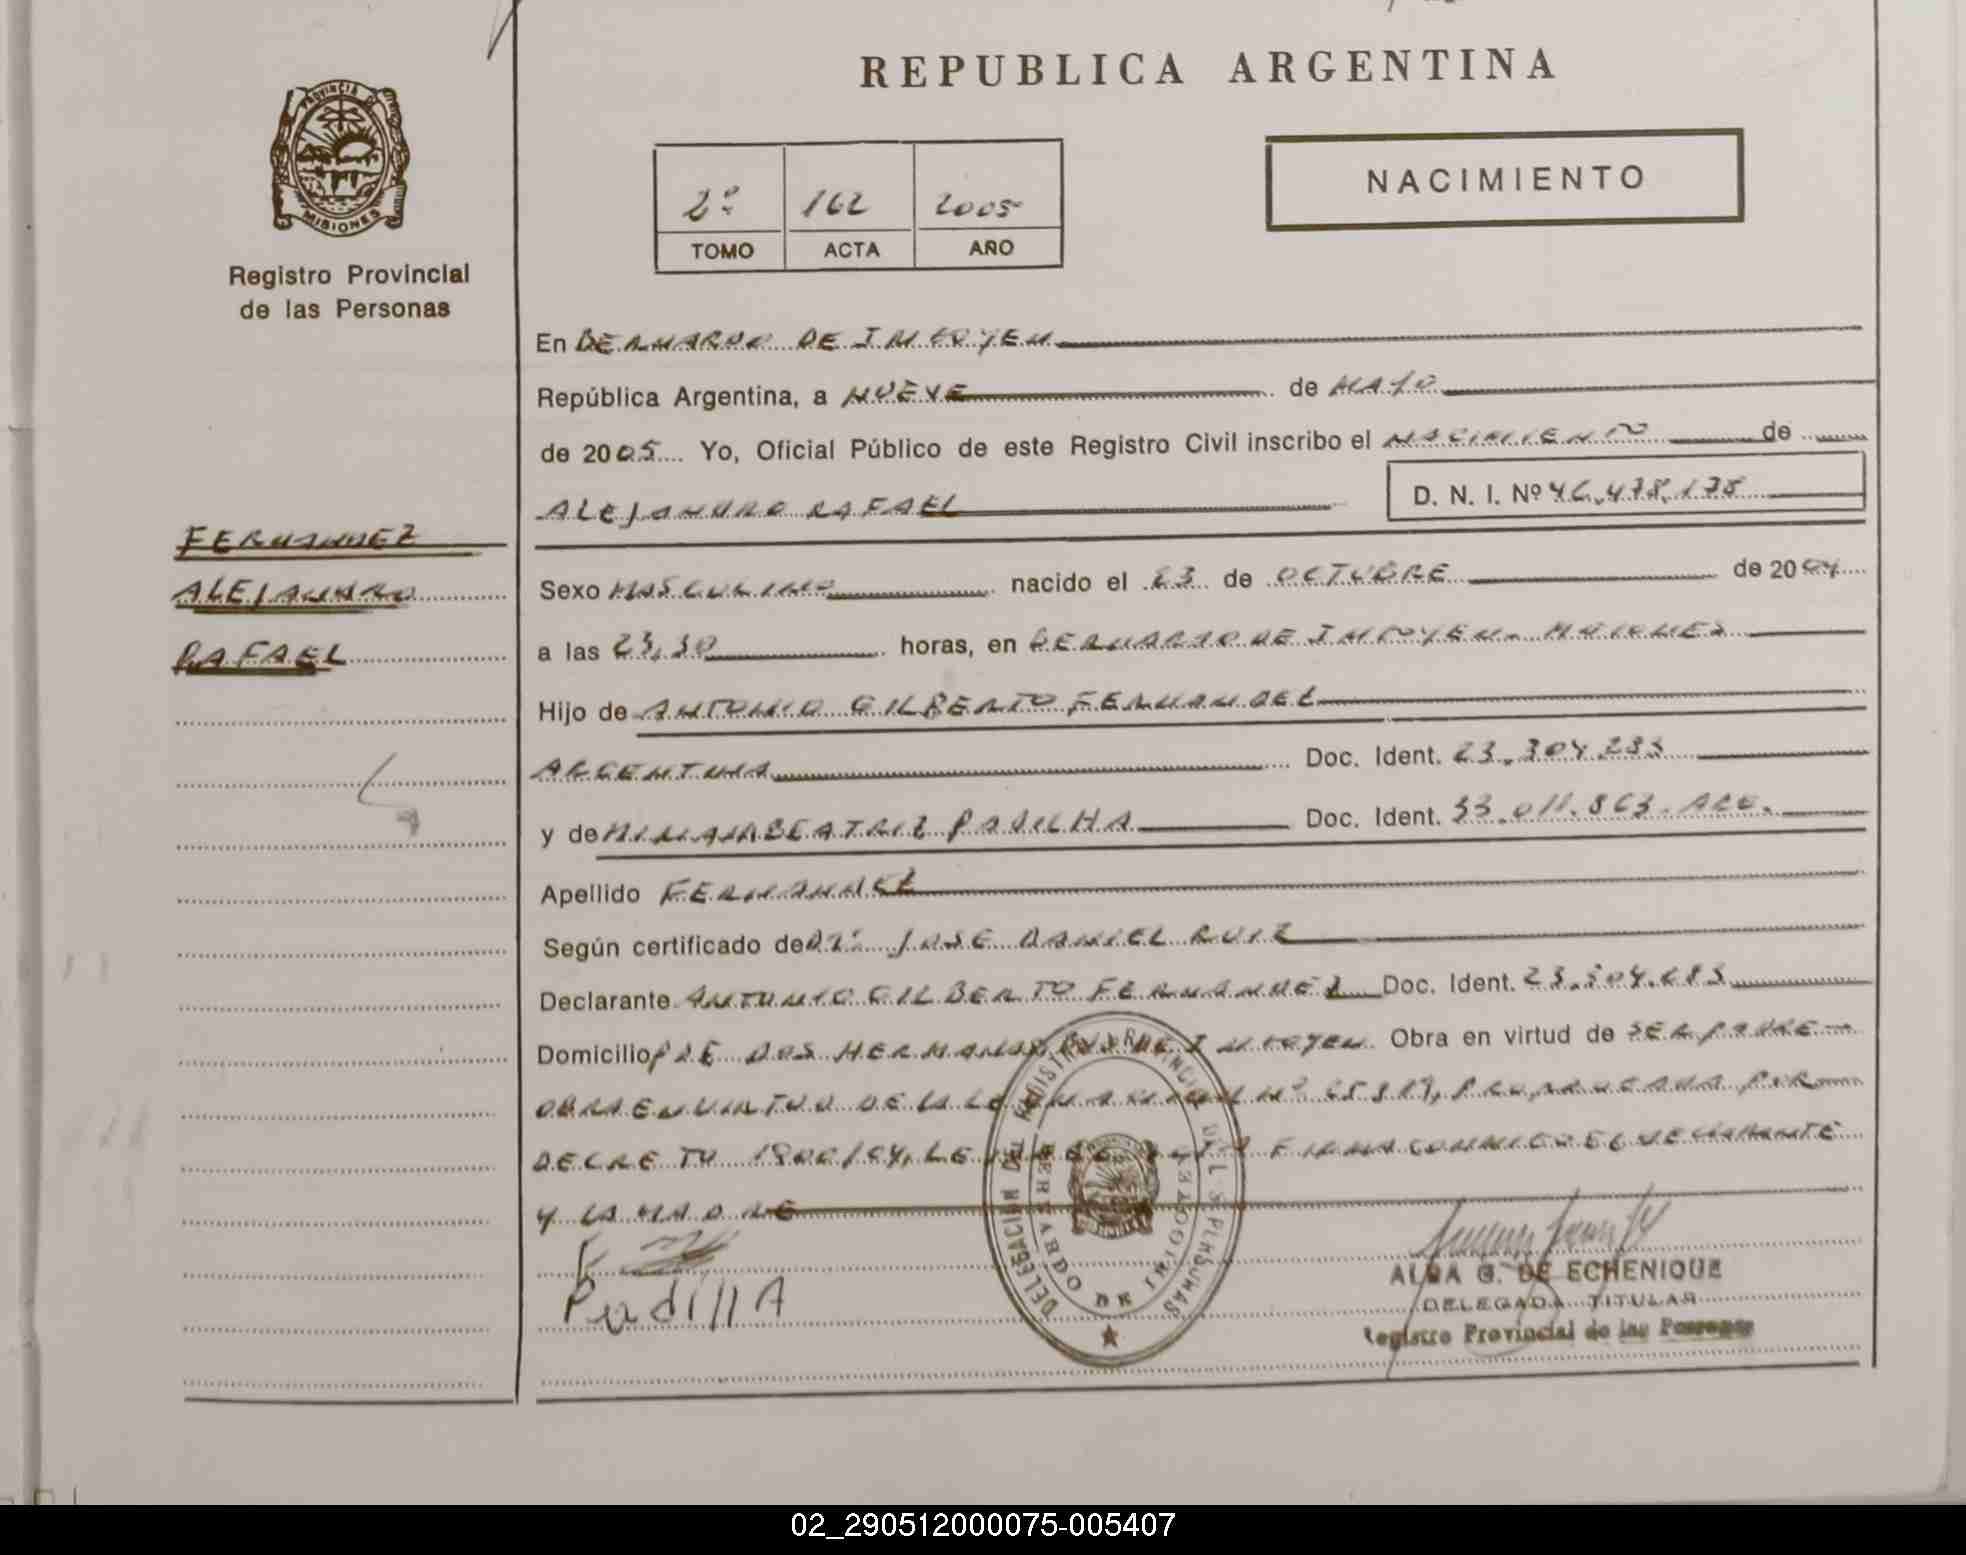 REPUBLICA ARGENTINA
PROVINCIA DE
MISIONES
Registro Provincial
de las Personas
2º 162 2005
TOMO ACTA AÑO
NACIMIENTO
En BERNARDO DE IRIGOYEN
República Argentina, a NUEVE de MAYO
de 2005 Yo, Oficial Público de este Registro Civil inscribo el NACIMIENTO de
ALEJANDRO RAFAEL D. N. I. Nº 46.478.178
FERNANDEZ
ALEJANDRO
RAFAEL
Sexo MASCULINO nacido el 23 de OCTUBRE de 2004
a las 23,30 horas, en BERNARDO DE IRIGOYEN. MISIONES
Hijo de ANTONIO GILBERTO FERNANDEZ
ARGENTINA Doc. Ident. 23.304.283
y de BEATRIZ PADILHA Doc. Ident. 33.011.863. ARG.
Apellido FERNANDEZ
Según certificado de JOSE DANIEL RUIZ
Declarante ANTONIO GILBERTO FERNANDEZ Doc. Ident. 23.304.283
Domicilio DOS HERMANAS IRIGOYEN Obra en virtud de SER PADRE
OBRA EN VIRTUD DE LA LEY Nº PRORROGADA POR
DECRETO FIRMA CONMIGO EL DECLARANTE
Y LA MADRE
DELEGACION DEL REGISTRO PROVINCIAL DE L S PERSONAS
BERNARDO DE IRIGOYEN
PadillA
ALBA G. DE ECHENIQUE
DELEGADA TITULAR
Registro Provincial de las Personas
02_290512000075-005407